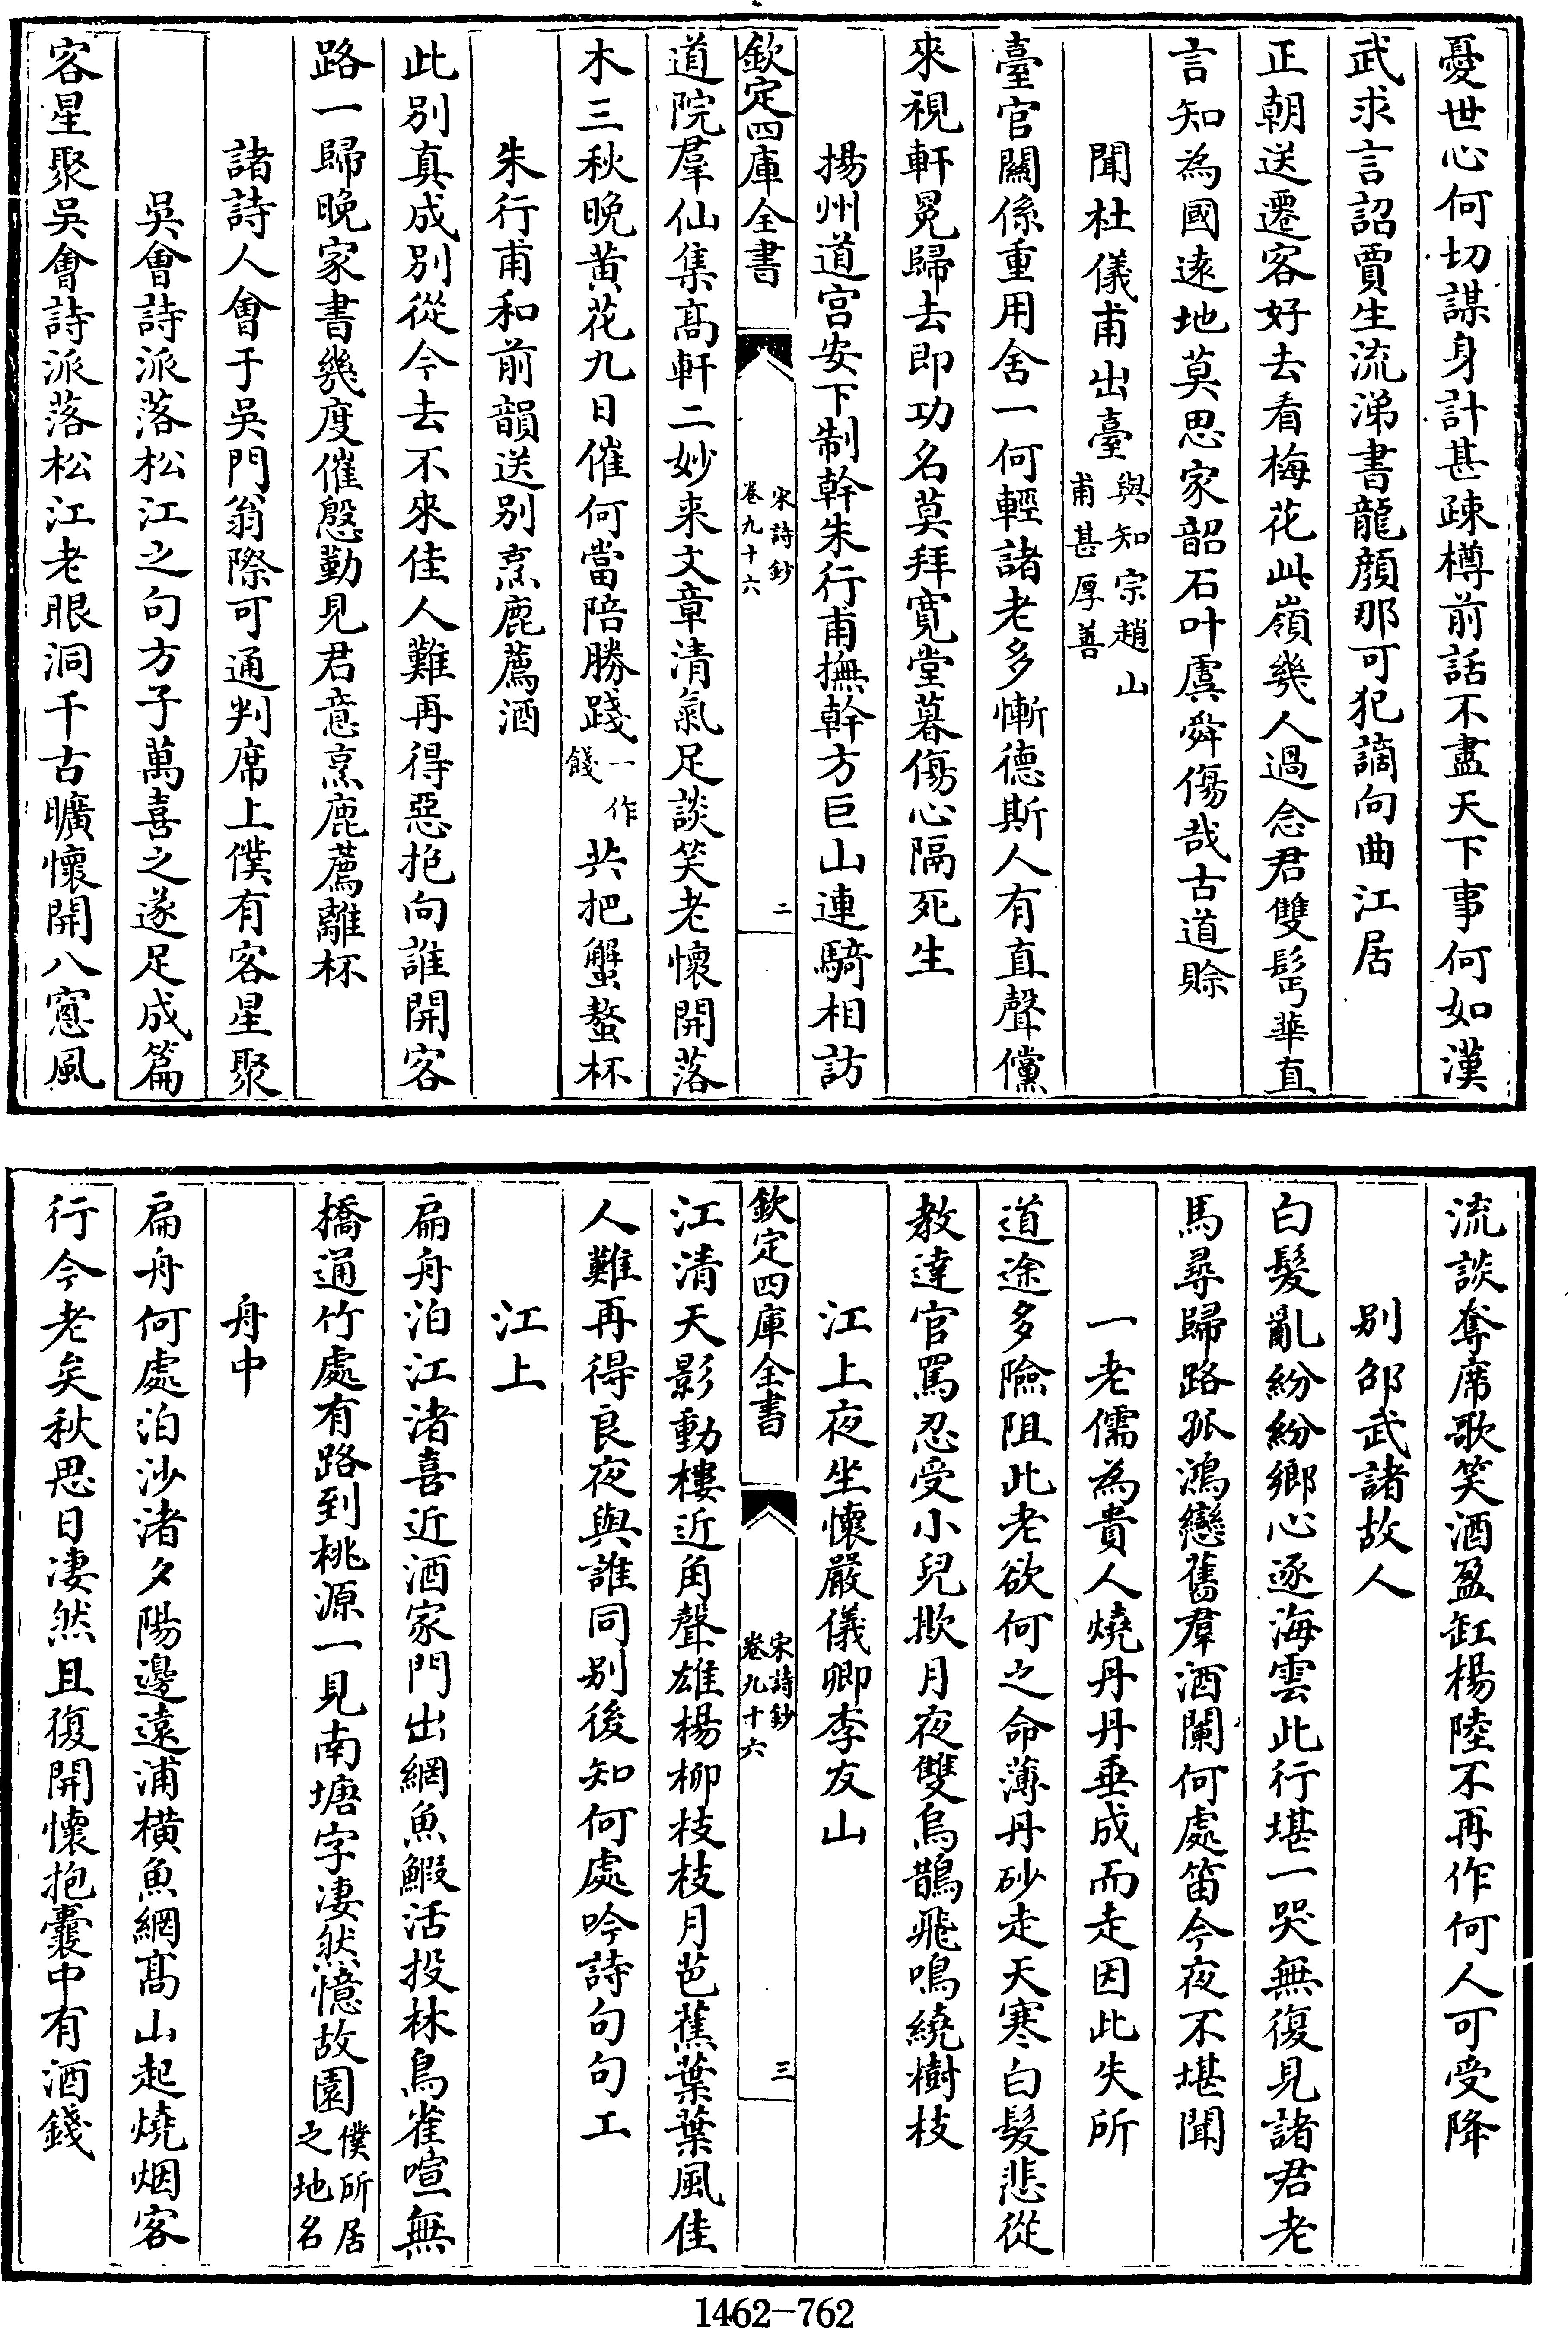 憂世心何切謀身計甚疎樽前話不盡天下事何如漢
武求言詔賈生流涕書龍顏那可犯謫向曲江居
正朝送遷客好去看梅花此嶺幾人過念君雙鬂華直
言知為國遠地莫思家韶石叶虞舜傷哉古道賒
聞杜儀甫出臺與知宗趙山甫甚厚善
臺官關係重用舍一何輕諸老多慚德斯人有直聲儻
來視軒冕歸去即功名莫拜寛堂暮傷心隔死生
揚州道宫安下制幹朱行甫撫幹方巨山連騎相訪
欽定四庫全書
宋詩鈔
卷九十六
二
道院羣仙集髙軒二妙来文章清氣足談笑老懷開落
木三秋晚黄花九日催何當陪勝踐一作餞共把蟹螯杯
朱行甫和前韻送别烹鹿薦酒
此别真成别從今去不來佳人難再得惡抱向誰開客
路一歸晚家書幾度催慇勤見君意烹鹿薦離杯
諸詩人會于吳門翁際可通判席上僕有客星聚
吳會詩派落松江之句方子萬喜之遂足成篇
客星聚吳會詩派落松江老眼洞千古曠懷開八窻風
流談奪席歌笑酒盈缸楊陸不再作何人可受降
别邵武諸故人
白髮亂紛紛鄉心逐海雲此行堪一哭無復見諸君老
馬尋歸路孤鴻戀舊羣酒闌何處笛今夜不堪聞
一老儒為貴人燒丹丹垂成而走因此失所
道途多險阻此老欲何之命薄丹砂走天寒白髮悲從
教達官罵忍受小兒欺月夜雙烏鵲飛鳴繞樹枝
江上夜坐懷嚴儀卿李友山
欽定四庫全書
宋詩鈔
卷九十六
三
江清天影動樓近角聲雄楊柳枝枝月芭蕉葉葉風佳
人難再得良夜與誰同别後知何處吟詩句句工
江上
扁舟泊江渚喜近酒家門出網魚鰕活投林鳥雀喧無
橋通竹處有路到桃源一見南塘字淒然憶故園僕所居之地名
舟中
扁舟何處泊沙渚夕陽邊遠浦横魚網髙山起燒烟客
行今老矣秋思日淒然且復開懷抱囊中有酒錢
1462-762